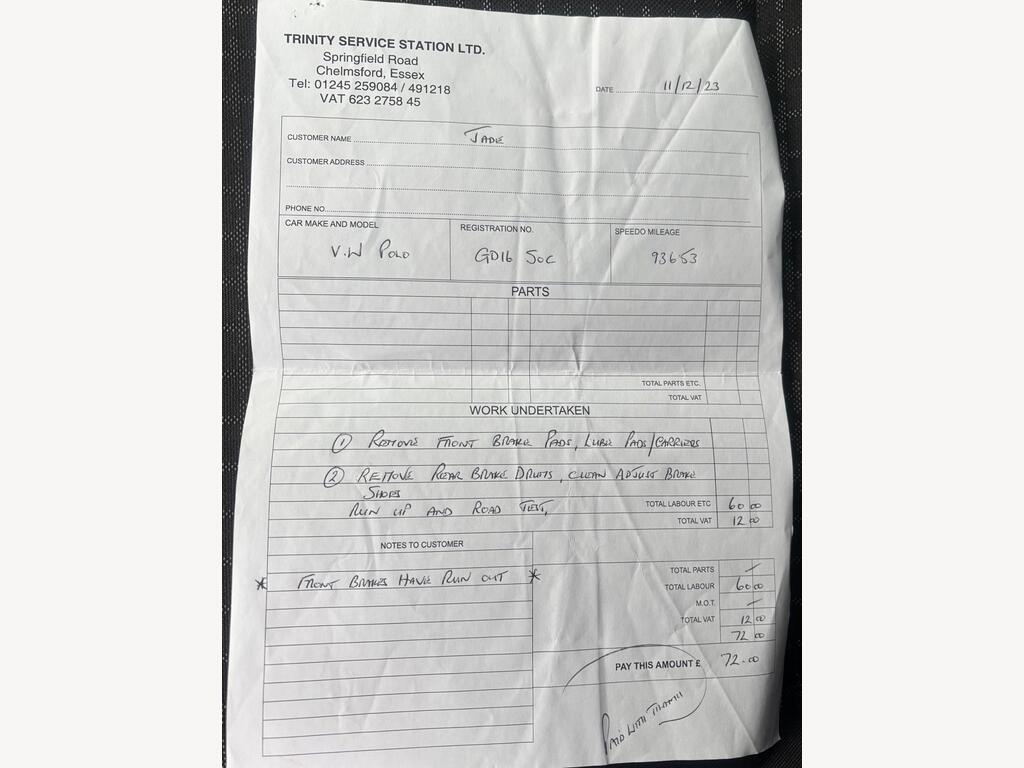 TRINITY SERVICE STATION LTD.
Springfield Road
Chelmsford, Essex
Tel: 01245 259084 / 491218
VAT 623 2758 45
DATE 11/12/23
CUSTOMER NAME JADE
CUSTOMER ADDRESS
PHONE NO.
CAR MAKE AND MODEL REGISTRATION NO. SPEEDO MILEAGE
V.W POLO GD16 SOC 93653
PARTS
TOTAL PARTS ETC.
TOTAL VAT
WORK UNDERTAKEN
① REMOVE FRONT BRAKE PADS, LUBE PADS/CARRIERS
② REMOVE REAR BRAKE DRUMS, CLEAN ADJUST BRAKE
SHOES
RUN UP AND ROAD TEST,
TOTAL LABOUR ETC 60 00
TOTAL VAT 12 00
NOTES TO CUSTOMER
* FRONT BRAKES HAVE RUN OUT *
TOTAL PARTS –
TOTAL LABOUR 60 00
M.O.T. –
TOTAL VAT 12 00
72 00
PAY THIS AMOUNT £ 72.00
PAID WITH THANKS